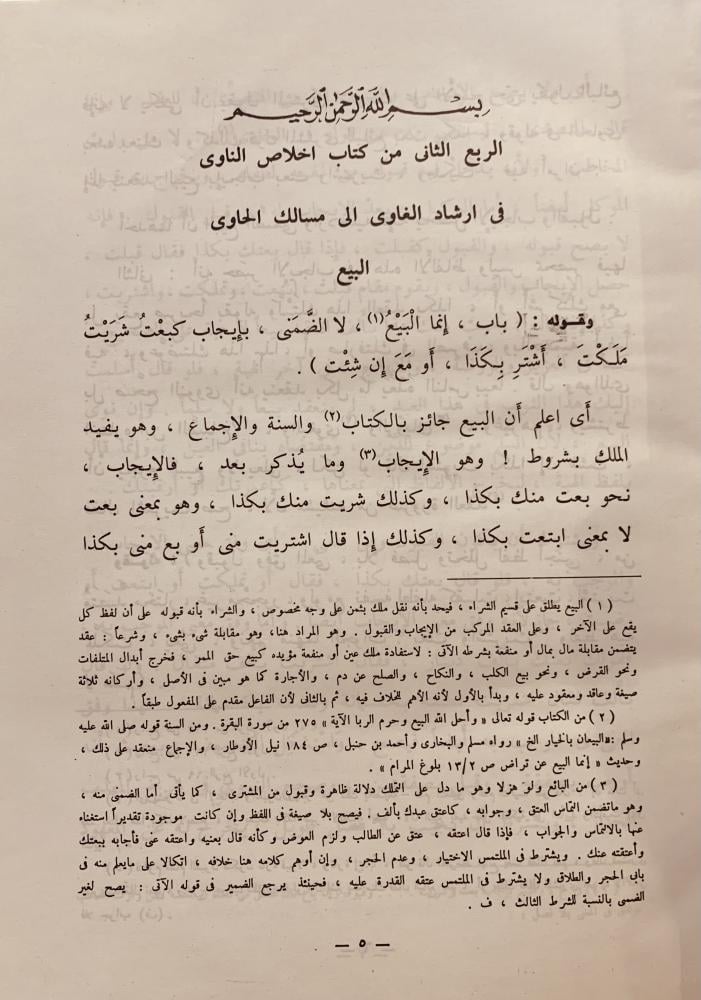 بسم الله الرحمن الرحيم
الربع الثانى من كتاب اخلاص الناوى
فى ارشاد الغاوى الى مسالك الحاوى
البيع
وقوله : ( باب ، إنما الْبَيْعُ(١) ، لا الضَّمَنى ، بإيجاب كبعْتُ شَرَيْتُ
مَلَكْتَ ، أَشْتَرِ بِكَذَا ، أَو مَعَ إِن شِئْت ) .
أَى اعلم أَن البيع جائز بالكتاب(٢) والسنة والإِجماع ، وهو يفيد
الملك بشروط ! وهو الإِيجاب(٣) وما يُذكر بعد ، فالإِيجاب ،
نحو بعت منك بكذا ، وكذلك شريت منك بكذا ، وهو بمعنى بعت
لا بمعنى ابتعت بكذا ، وكذلك إِذا قال اشتريت منى أَو بع منى بكذا
( ١ ) البيع يطلق على قسيم الشراء ، فيحد بأنه نقل ملك بثمن على وجه مخصوص ، والشراء بأنه قبوله على أن لفظ كل
يقع على الآخر ، وعلى العقد المركب من الإيجاب والقبول . وهو المراد هنا، وهو مقابلة شىء بشىء ، وشرعاً : عقد
يتضمن مقابلة مال بمال أو منفعة بشرطه الآتى : لاستفادة ملك عين أو منفعة مؤيده كبيع حق الممر ، فخرج أبدال المتلفات
ونحو القرض ، ونحو بيع الكلب ، والنكاح ، والصلح عن دم ، والأجارة كما هو مبين فى الأصل ، وأركانه ثلاثة
صيغة وعاقد ومعقود عليه ، وبدأ بالأول لأنه الأهم للخلاف فيه ، ثم بالثانى لأن الفاعل مقدم على المفعول طبقاً .
( ٢ ) من الكتاب قوله تعالى « وأحل الله البيع وحرم الربا الآية » ٢٧٥ من سورة البقرة . ومن السنة قوله صلى الله عليه
وسلم :«البيعان بالخيار الخ » رواه مسلم والبخارى وأحمد بن حنبل ، ص ١٨٤ نيل الأوطار ، والإجماع منعقد على ذلك ،
وحديث « إنما البيع عن تراض ص ١٣/٢ بلوغ المرام » .
( ٣ ) من البائع ولو هزلا وهو ما دل على التملك دلالة ظاهرة وقبول من المشترى ، كما يأتى أما الضمنى منه ،
وهو ماتضمن التماس العتق ، وجوابه ، كاعتق عبدك بألف . فيصح بلا صيغة فى اللفظ وإن كانت موجودة تقديراً استغناء
عنها بالالتماس والجواب ، فإذا قال اعتقه ، عتق عن الطالب ولزم العوض وكأنه قال بعنيه واعتقه عنى فأجابه ببعتك
وأعتقته عنك . ويشترط فى الملتمس الاختيار ، وعدم الحجر ، وإن أوهم كلامه هنا خلافه ، اتكالا على مايعلم منه فى
بابى الحجر والطلاق ولا يشترط فى الملتمس عتقه القدرة عليه ، فحينئذ يرجع الضمير فى قوله الآتى : يصح لغير
الضمى بالنسبة للشرط الثالث ، ف .
— ٥ —